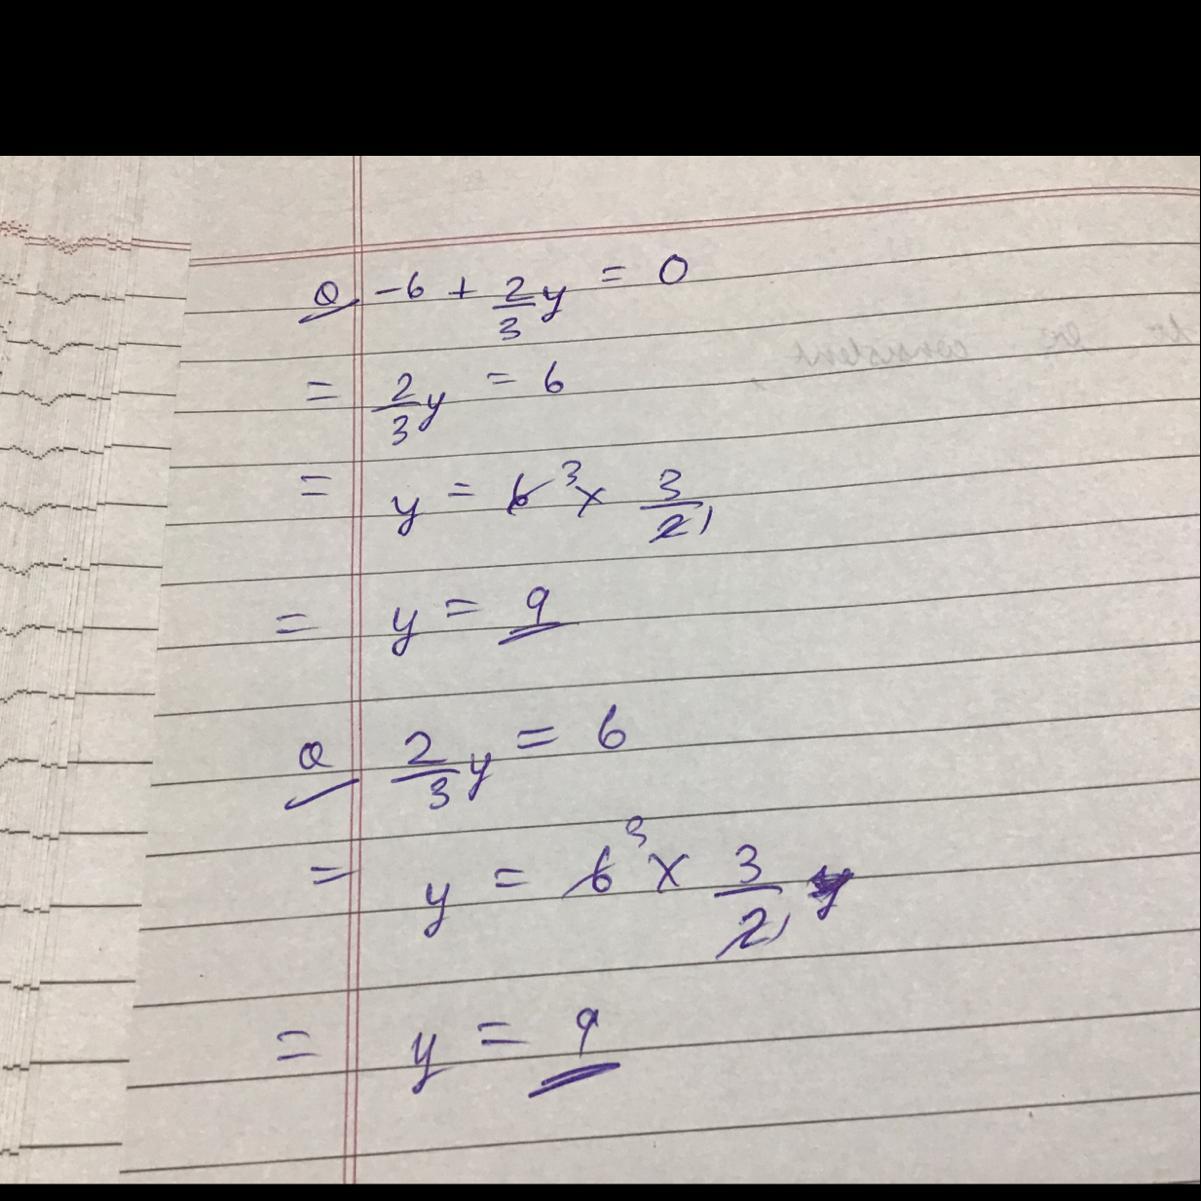 Q -6 + 2/3 y = 0
= 2/3 y = 6
= y = 6 3 x 3/2 1
= y = 9
Q 2/3 y = 6
= y = 6 3 x 3/2 1
= y = 9